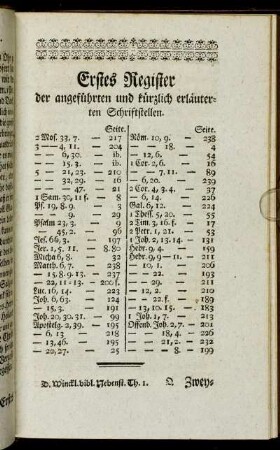 Erstes Register
der angeführten und kürzlich erläuter-
ten Schriftstellen.
Seite.
2 Mos. 33, 7. — 217
3 — 4, 11. — 204
— — 6, 30. — ib.
— — 15. 3. — ib.
5 — 21, 23. — 210
— — 32, 29. — 16
— — — 47. — 21
1 Sam. 30, 11 f. — 8
Pf. 19, 8. 9. — 3
— — 9. — 29
Psalm 23, 3. — 9
— 45, 2. — 96
Jes. 66, 3. — 197
Jer. 1, 5. 11. — 8. 80
Micha 6, 8. — 32
Matth. 6, 7. — 238
— 15, 8. 9. 13. — 237
— 22, 11-13. — 200 f.
Luc. 16, 14. — 223
Joh. 6, 63. — 124
— — 15, 3. — 191
Joh. 20, 30. 31. — 99
Apostelg. 2, 39. — 195
— 6, 13 — 218
— 13, 46. — 195
— 20, 27. — 25
Seite.
Röm. 10, 9. — 238
— — 18. — 4
— 12, 6. — 54
1 Cor. 2, 6. — 16
— — 7, 11. — 89
— 6, 20. — 239
2 Cor. 4, 3. 4. — 37
— 6, 14. — 226
Gal. 6, 12. — 224
1 Thess. 5, 20. — 55
2 Tim. 3, 16. f. — 17
2 Petr. 1, 21. — 53
1 Joh. 2, 13. 14. — 131
Hebr. 9, 4. — 159
Hebr. 9, 9 — 211
— 10, 1. — 206
— — 22. — 193
— — 29. — 211
— 12, 2. — 210
— — 22 f. — 189
— 13, 10. 15. — 183
1 Joh. 1, 7. — 213
Offenb. Joh. 2, 7. — 201
— — 16. — 193
— — 21, 2. — 232
— — 8. — 199
D. Winckl. bibl. Nebenst. Th. 1. Q Zwey-